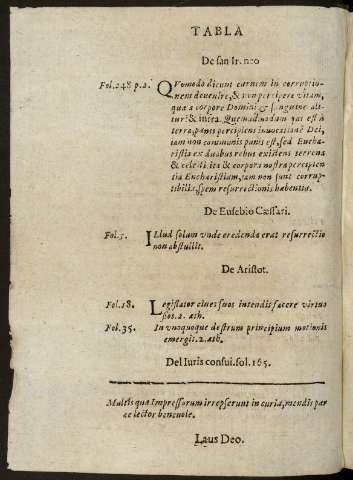 TABLA
De san Ireneo
Fol. 248 p.2. QVomodo dicunt carnem in corruptio-
nem deuenire, & non percipere vitam,
quæ a corpore Domini & sanguine ali-
tur: & infra. Quemadmodum qui est à
terra, panis percipiens inuocationē Dei,
iam non communis panis est, sed Eucha-
ristia ex duabus rebus existens terrena
& celesti, ita & corpora nostra percipien
tia Eucharistiam, iam non sunt corrup-
tibilia, spem resurrectionis habentia.
De Eusebio Cæssari.
Fol. 5. Illud solum vnde credenda erat resurrectio
non abstullit.
De Aristot.
Fol. 18. Legislator ciues suos intendit facere virtuo
sos. 2. æth.
Fol. 35. In vnoquoque destrum principium motionis
emergit. 2. æth.
Del Iuris consui. fol. 165.
Multis quæ Impressorum irrepserunt in curia, mendis par
ce lector beneuole.
Laus Deo.